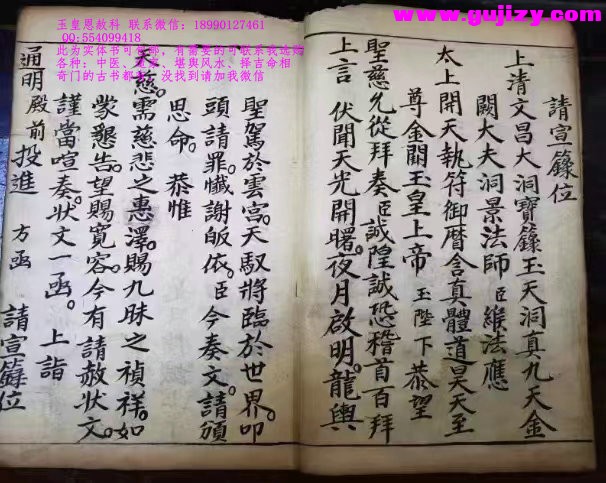 www.gujizy.com
玉皇恩赦科 联系微信：18990127461
QQ:554099418
此为实体书可复印，有需要的可联系我选购
各种：中医、道家、堪舆风水、择吉命相
奇门的古书都有，没找到请加我微信
請宣籙位
上清文昌大洞寶籙玉天洞真九天金
闕大夫洞景法師臣維法應
太上開天執符御曆含真體道昊天至
尊金闕玉皇上帝 玉陛下恭望
聖慈允從拜奏臣誠隍誠恐稽首百拜
上言 伏聞天光開曙。夜月啟明。龍輿
聖駕於雲宮。天馭將臨於世界。叩
頭請罪。懺謝皈依。臣今奏文。請頒
思命。 恭惟
天慈。需慈悲之惠澤。賜九阩之禎祥。如
蒙懇告。望賜寬容。今有請赦狀文。
謹當喧奏。狀文一函。 上詣
通明殿前投進 方函 請宣籙位